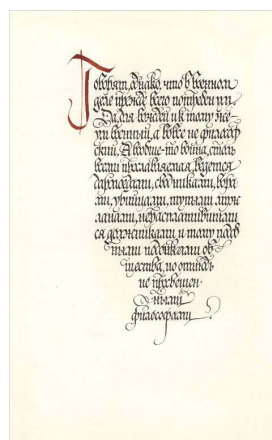 Говорят, однако, что в военном
деле прежде всего потребен ум.
Да, для вождей и к тому же
ум военный, а вовсе не философ
ский. А вообще-то война, столь
всеми прославляемая, ведется
дармоедами, сводниками, вора
ми, убийцами, тупыми мужс
ланами, нерасплатившими
ся должниками и тому подоб
ными подонками об
щества, но отнюдь
не просвещен
ными
философами